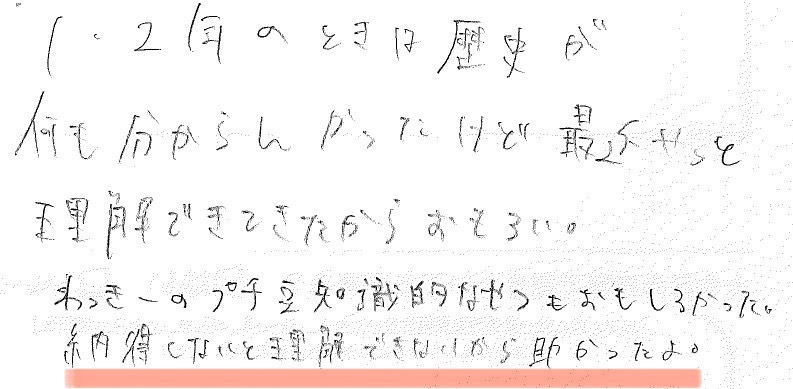 1・2年のときは歴史が
何も分からんかったけど最近やっと
理解できてきたからおもろい。
わっきーのプチ豆知識的なやつもおもしろかった。
納得しないと理解できないから助かったよ。